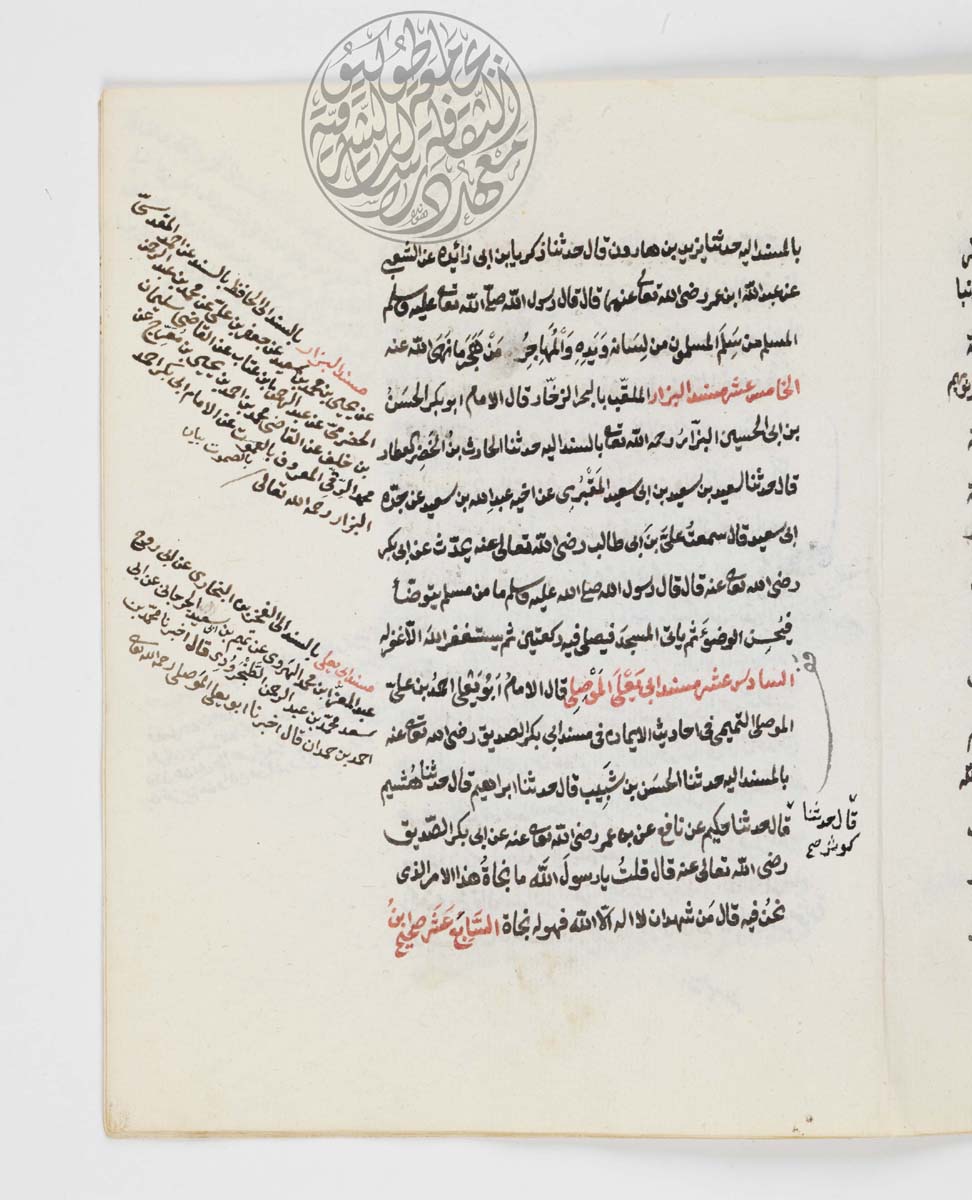 بالمسند اليه حدثنا يزيد بن هارون قال حدثنا زكريا بن ابى زائده عن الشعبى
عن عبد الله ابن عمر رضى الله تعالى عنهما قال قال رسول الله صلى الله تعالى عليه وسلم
المسلم من سَلِمَ المسلمون من لِسَانه وَيَدِهِ وَالْمُهَاجِرُ مَنْ هَجَرَ مانهى الله عنه
الخامس عشر مسند البزار الملقّب بالبحر الزخّار قال الامام ابو بكر الحسَنُ
بن ابى الحسين البزّارُ رحمه الله تعالى بالسند اليه حدثنا الحارث بنُ الخَضِر العطار
قال حدثنا سعيد بن سعيد بن ابى سعيد المَقْبُرِى عن اخيه عبد الله بن سعيد عن جدّه
ابى سعيد قال سمعتُ علىَّ بن ابى طالب رضى الله تعالى عنه يحدّث عن ابى بكر
رضى الله تعالى عنه قال قال رسول الله صلى الله عليه وسلم ما من مسلم يتوضأ
فيُحسِن الوضوءَ ثم ياتى المسجدَ فيصلى فيه ركعتين ثم يستغفر الله الّا غفر له
السادس عشر مسند ابى يَعْلَى المَوْصِلى قال الامامُ ابو يَعْلى احمد بن علىّ
الموصلى التميمى فى احاديث الايمان فى مسند ابى بكر الصديق رضى الله تعالى عنه
بالمسند اليه حدثنا الحسَن بن شَبِيب قال حدثنا ابراهيم قال حدثنا هُشيم
قال حدثنا حكيم عن نافع عن بن عمر رضى الله تعالى عنه عن ابى بكر الصّديق
رضى الله تعالى عنه قال قلتُ يا رسولَ الله ما نجاةُ هذا الامر الذى
نحنُ فيه قال مَن شهد ان لا اله الّا الله فهو له نجاة السَّابعَ عَشَر صحيح ابنُ
قال حدثنا
كوثر صح
مسند البزار بالسند الى الحافظ بالسند عن احمد المقدسى
عن يحيى بن محمد بن سعيد عن جعفر بن على عن محمد بن عبد الرحمن
الحضرمى عن عبد الرحمن بن عتاب عن القاضى سليمان
بن خلف عن القاضى محمد بن احمد بن يحيى بن مُفَرّج عن
محمد الرقى المعروف بالصموت عن الامام ابى بكر احمد
بالصموت بيان
البزار رحمه الله تعالى
مسند ابى يعلى بالسند الى الفخر بن البخارى عن ابى روح
عبد المعز ابن محمد الهروى عن تميم بن ابى سعيد الجرجانى عن ابى
سعد محمد بن عبد الرحمن الكَنْجَرُودِى قال اخبرنا محمد بن
احمد بن حمدان قال اخبرنا ابو يعلى الموصلى رحمه الله تعالى
معهد الثقافة والدراسات الشرقية
جامعة طوكيو